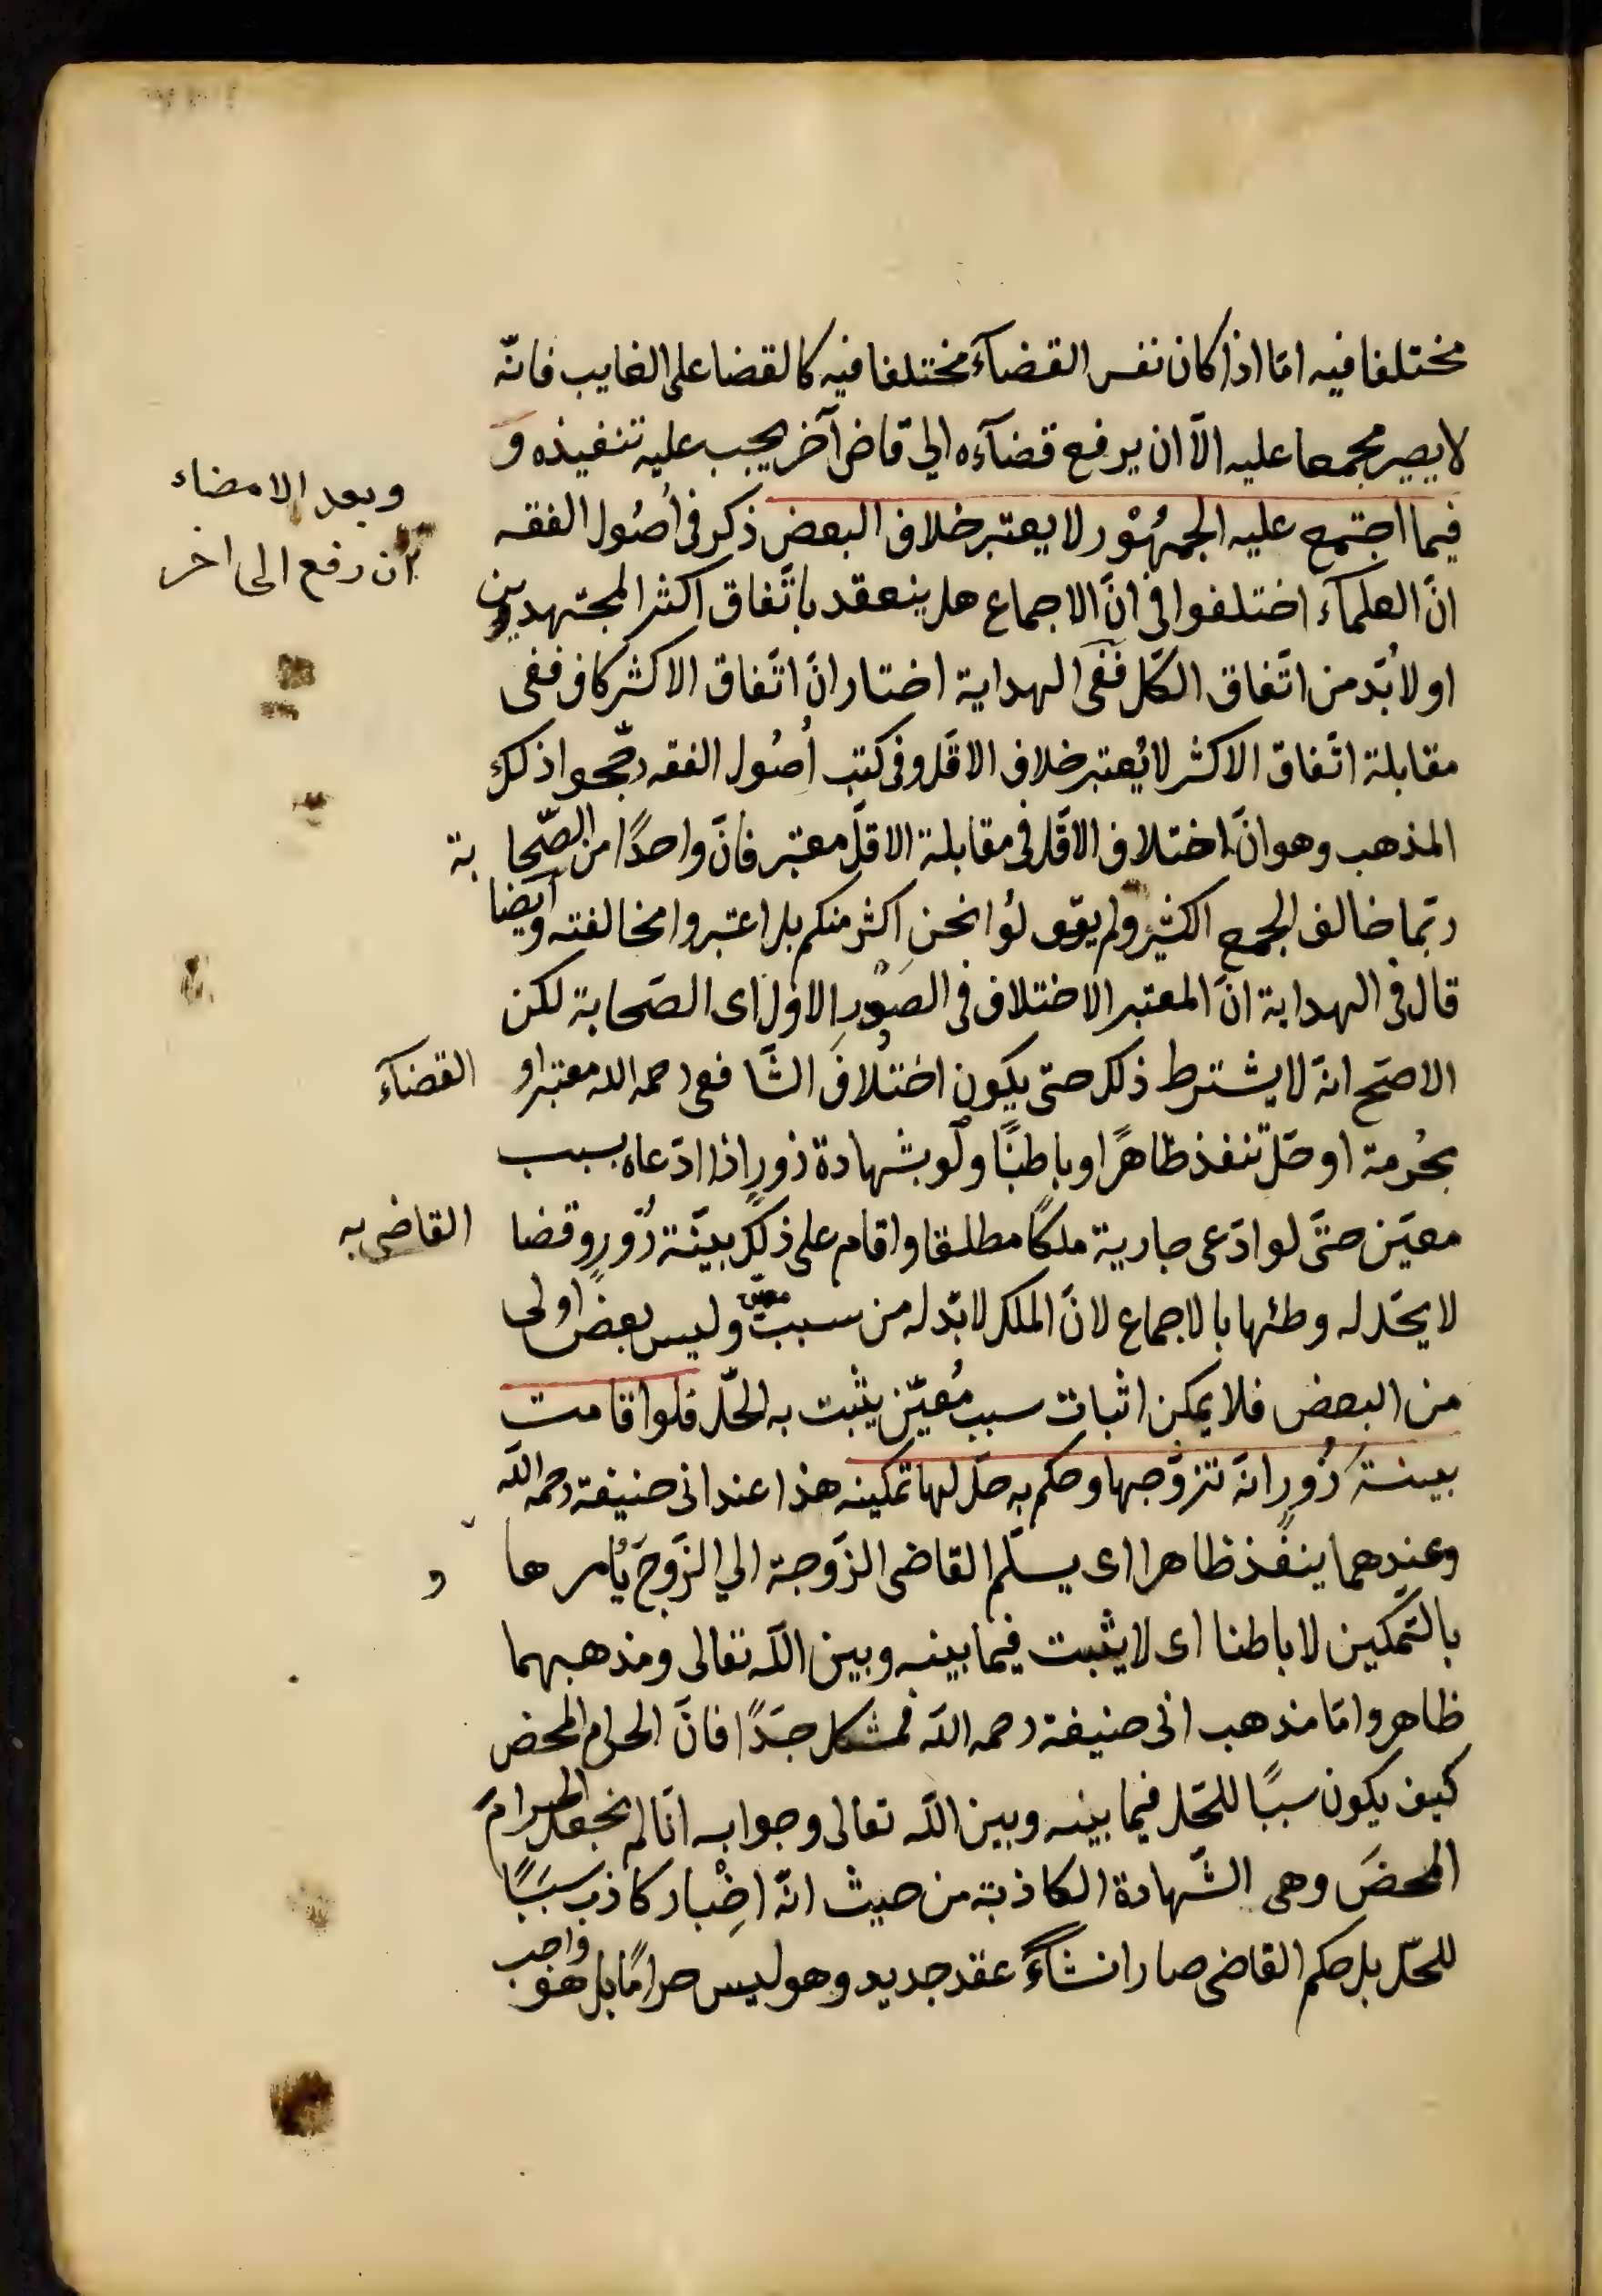 مختلفا فيه امّا اذا كان نفس القضآء مختلفا فيه كالقضا على الغايب فانّه
لا يصير مجمعا عليه الّا ان يرفع قضآءه الي قاض آخر يجب عليه تنفيذه و
وبعد الامضاء
ان رفع الى اخر
فيما اجتمع عليه الجمهُوْر لا يعتبر خلاف البعض ذكر فى اُصُول الفقه
انّ العلمآء اختلفوا فى انّ الاجماع هل ينعقد باتّفاق اكثر المجتهدين
او لابُدّ من اتّفاق الكلّ ففى الهداية اختار انّ اتّفاق الاكثر كاف ففى
مقابلة اتّفاق الاكثر لا يُعتبر خلاف الاقلّ وفى كتب اُصُول الفقه رجّحوا ذلك
المذهب وهو انّ اختلاف الاقلّ فى مقابلة الاقلّ معتبر فانّ واحدًا من الصّحابة
ربّما خالف الجمع الكثير ولم يقولُوا نحن اكثر منكم بل اعتبروا مخالفته وايضا
قال فى الهداية انّ المعتبر الاختلاف فى الصّدْرِ الاوّل اى الصّحابة لكن
الاصحّ انّه لا يشترط ذلك حتى يكون اختلاف الشّافعى رحمه الله معتبرا و القضآء
بحُرمة او حلّ تنفذ ظاهرًا وباطنًا ولو بشهادة زورٍ اذا ادّعاه بسبب
معيّن حتّى لو ادّعى جارية ملكًا مطلقا واقام على ذلك بيّنة زُورٍ وقضا القاضى به
لا يحّل له وطئها بالاجماع لانّ الملك لابدّ له من سبب معيّن وليس بعض اولى
من البعض فلا يمكن اثبات سبب مُعيّن يثبت به الحلّ فلو اقامت
بينةَ زُورٍ انّه تزوّجها وحكم به حلّ لها تمكينه هذا عند ابى حنيفة رحمه اللّه
وعندهما ينفذ ظاهرا اى يسلّم القاضى الزّوجة الي الزّوج و يأمرها
بالتّمكين لا باطنا اى لا يثبت فيما بينه وبين اللّه تعالى ومذهبهما
ظاهر وامّا مذهب ابى حنيفة رحمه اللّه فمشكل جدًّا فانّ الحرام المحض
كيف يكون سببًا للحّل فيما بينه وبين اللّه تعالى وجوابه انّا لم نجعل الحرامَ
المحضَ وهى الشّهادة الكاذبة من حيث انّه اخِْبار كاذب سببًا
للحّل بل حكم القاضى صار انشآءً عقد جديد وهو ليس حرامًا بل هو واجب